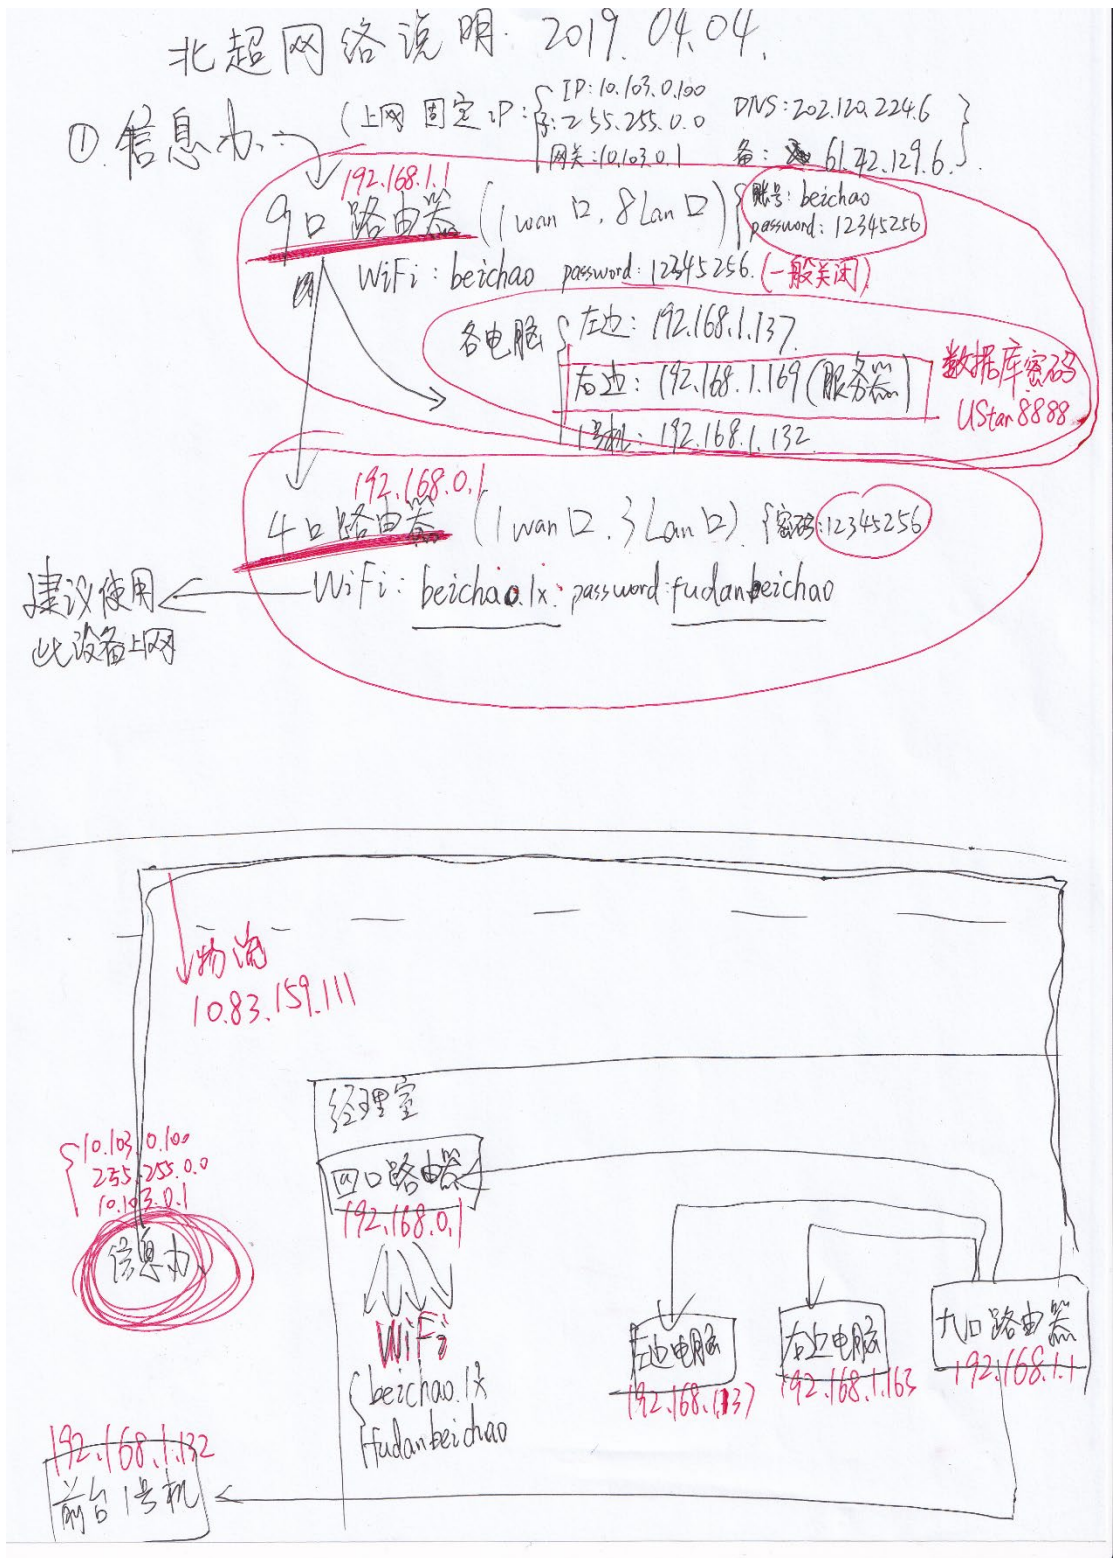 北超网络说明. 2019.04.04.
① 信息办. (上网 固定IP: IP:10.103.0.100 DNS:202.120.224.6
子:255.255.0.0
网关:10.103.0.1 备: 61.42.129.6.
192.168.1.1
9口路由器 (1 wan口, 8 Lan口) 账号: beichao
password: 12345256
WiFi: beichao password: 12345256. (一般关闭)
各电脑 左边: 192.168.1.137.
右边: 192.168.1.169 (服务器)
数据库密码
UStar8888
1号机: 192.168.1.132
192.168.0.1
4口路由器 (1 wan口. 3 Lan口) 密码:12345256
WiFi: beichao.lx. password:fudanbeichao
建议使用
此设备上网
物流
10.83.159.111
经理室
四口路由器
192.168.0.1
10.103.0.100
255.255.0.0
10.103.0.1
信息办
WiFi
beichao.lx
fudanbeichao
左边电脑
192.168.1.137
右边电脑
192.168.1.163
九口路由器
192.168.1.1
192.168.1.132
前台1号机